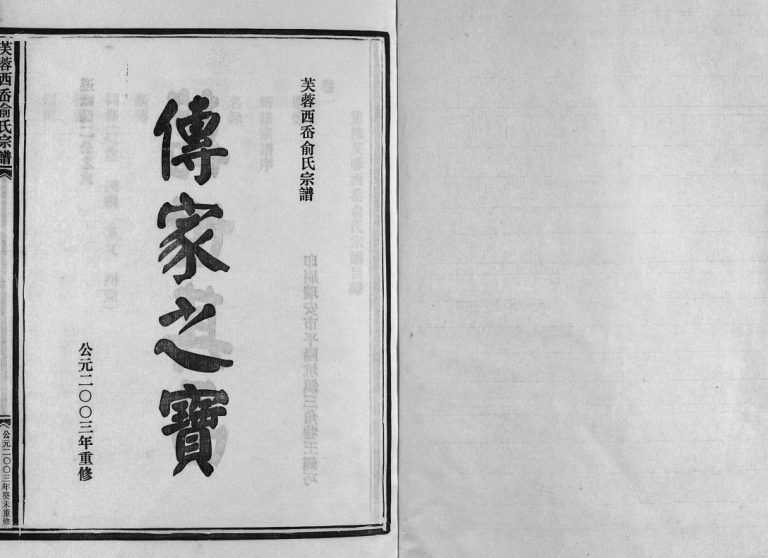 芙蓉西岙俞氏宗譜
傳家之寶
公元二〇〇三年重修
芙蓉西岙俞氏宗譜
公元二〇〇三年癸未重修